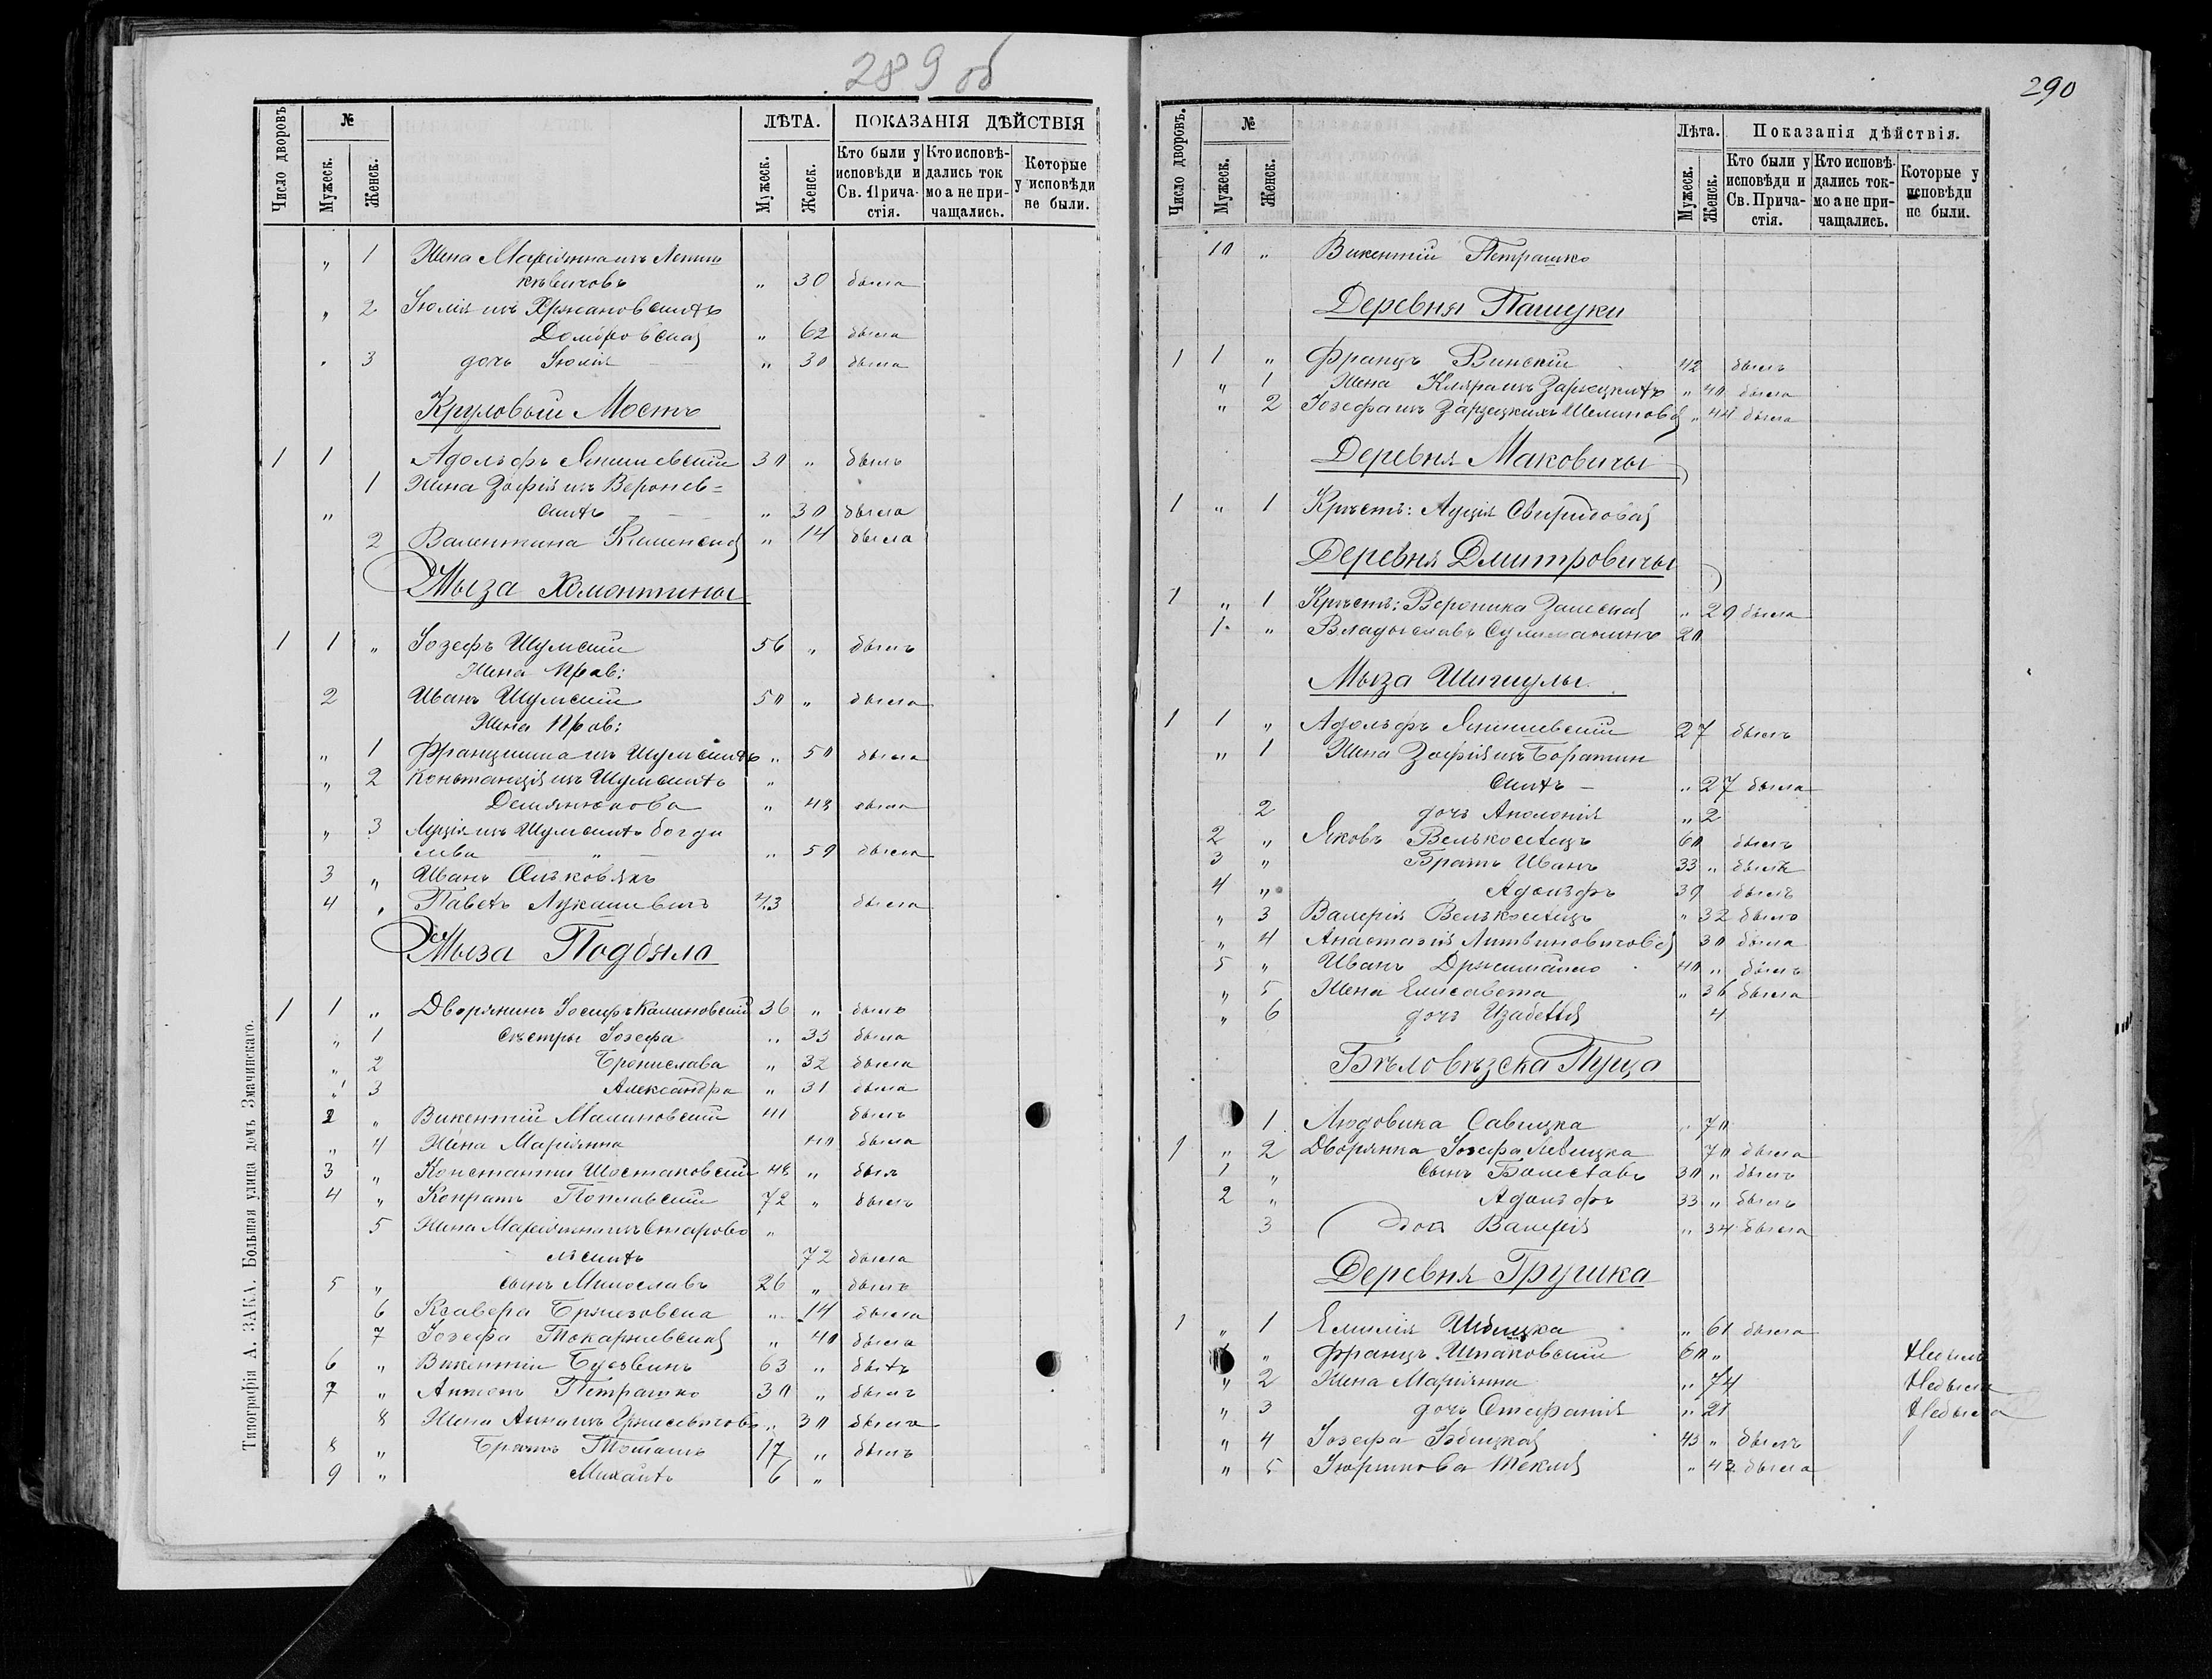 289 об
Число дворовъ
№
Мужеск.
Женск.
ЛѢТА.
Мужеск.
Женск.
ПОКАЗАНІЯ ДѢЙСТВІЯ
Кто были у исповѣди и Св. Прича-стія.
Кто исповѣ-дались ток мо а не при-чащались.
Которые у исповѣди не были.
„ 1 Жена Маріянна изъ
„ 30 была
„ 2 Юлія изъ Хржановскихъ
Домбровская „ 62 была
„ 3 дочь Юлія „ 30 была
Круловый Мостъ
1 1 Адольфъ Янишевскій 30 „ былъ
1 Жена Зофія изъ
„ скихъ „ 30 была
2 Валентина „ 14 была
Мыза Хомонтины
1 1 „ Іозефъ Шумскій 56 „ былъ
Жена Прав:
2 Иванъ Шумскій 50 „ была
Жена Прав:
„ 1 Францишка изъ Шумскихъ „ 50 была
„ 2 Констанція изъ Шумскихъ „
Демянюкова „ 43 была
„ 3 Луція изъ Шумскихъ
„ 59 была
3 „ Иванъ
4 „ Павелъ Лукашевичъ 43 была
Мыза Подбяла
1 1 „ Дворянинъ Іосифъ Калиновскій 36 „ былъ
„ 1 Сестры Іозефа „ 33 была
„ 2 Брониslава „ 32 была
„ 3 Александра „ 31 была
2 „ Викентій Малиновскій 41 былъ
„ 4 Жена Маріянна 40 была
3 „ Константій Шостаковскій 48 „ былъ
4 „ Конратъ Поплавскій 72 „ былъ
5 Жена Маріянна изъ Старово „
льскихъ 72 была
5 „ сынъ Милославъ 26 „ былъ
6 Ксавера Бржезовска „ 14 была
7 Іозефа Токаржевская „ 40 была
6 „ Викентій 63 „ былъ
7 „ Антонъ Петрашко 30 „ былъ
8 Жена Анна изъ „ 30 была
8 „ Братъ Томашъ 17 „ былъ
9 „ Михаилъ 6 „
Типографія А. ЗАКА. Большая улица домъ Змачинскаго.
290
Число дворовъ.
№
Мужеск.
Женск.
Лѣта.
Мужеск.
Женск.
Показанія дѣйствія.
Кто были у исповѣди и Св. Прича-стія.
Кто исповѣ-дались ток-мо а не при-чащались.
Которые у исповѣди не были.
10 „ Викентій Петрашко
Деревня Пашуки
1 1 „ Францъ Винскій 42 былъ
„ 1 Жена Кляра изъ Заржецкихъ „ 40 была
„ 2 Іозефа изъ Заржецкихъ „ 44 была
Деревня Маковичы
1 „ 1 Крест: Луція Свиридовая
Деревня Дмитровичы
1 „ 1 Крест: Вероника Залеская „ 29 была
1 „ Владыславъ 20
Мыза Шишулы
1 1 „ Адольфъ Янишевскій 27 былъ
„ 1 Жена Зофія изъ Боратин
скихъ „ 27 была
2 дочь Аполонія „ 2
2 „ Яковъ 60 былъ
3 „ Братъ Иванъ 33 „ былъ
4 „ Адольфъ 39 былъ
„ 3 Валерія „ 32 была
„ 4 Анастазія Литвиновичова 30 была
5 „ Иванъ 40 „ былъ
„ 5 Жена Елисавета „ 36 была
„ 6 дочь Изабелля 4
Бѣловѣзска Пуща
„ 1 Людовика Савицка „ 70
1 „ 2 Дворянка Іозефа Левицка 70 была
1 „ Сынъ Болеславъ 30 „ былъ
2 „ Адольфъ 33 „ былъ
3 доч Валерія „ 34 была
Деревня Грушка
1 „ 1 Емилія „ 61 была
1 „ Францъ Шпаковскій 60 „ Небылъ
„ 2 Жена Маріянна „ 74 Небыла
„ 3 дочь Стефанія „ 21 Небыла
„ 4 Іозефа 43 „ былъ
„ 5 Текля „ 42 была